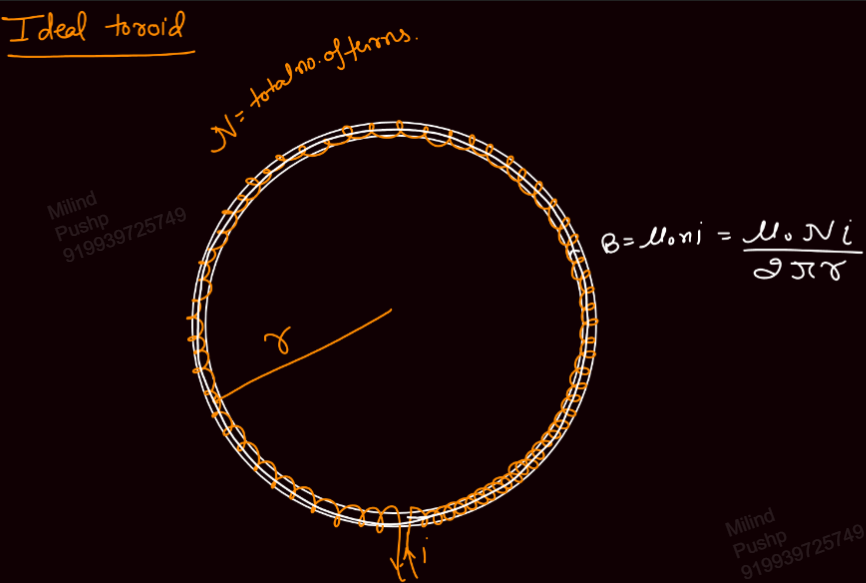 Ideal toroid
N = total no. of terns.
Milind
Pushp
919939725749
B = μ₀ni = μ₀Ni / 2πr
r
i
Milind
Pushp
919939725749